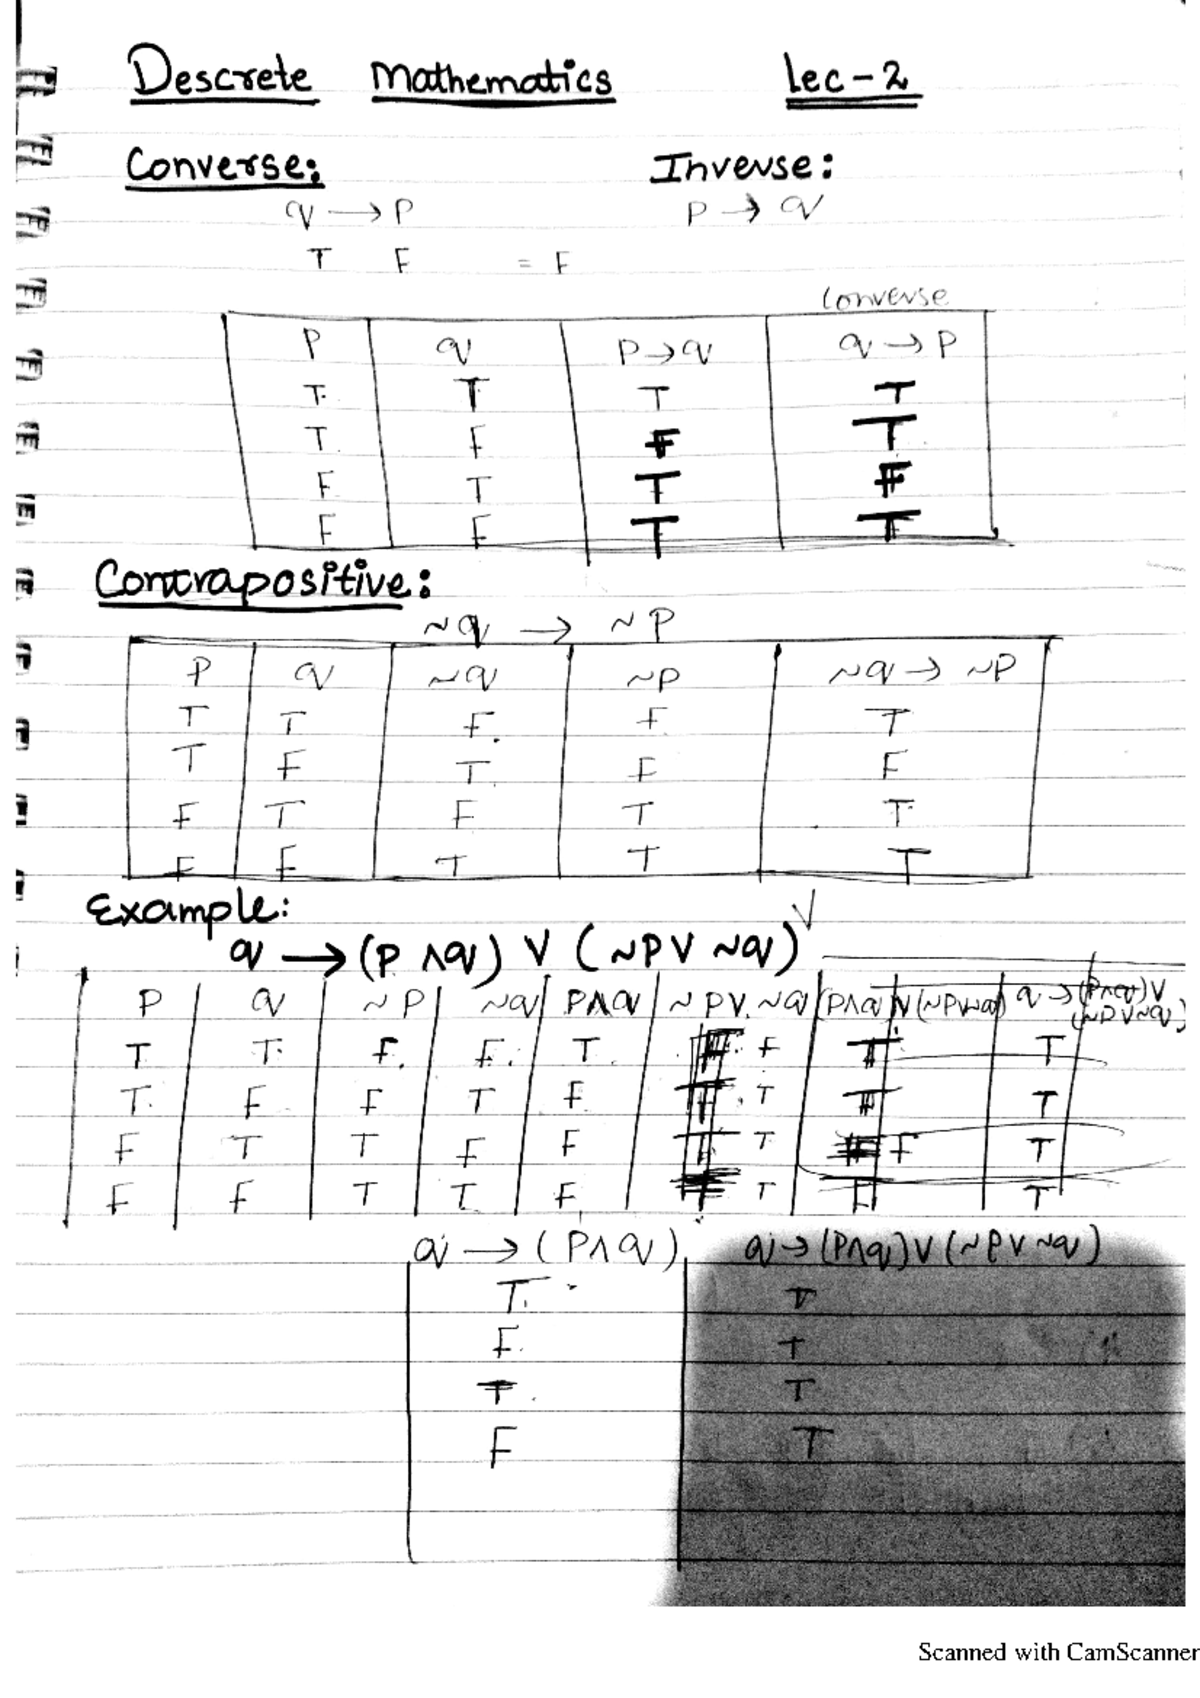 Descrete Mathematics Lec-2
Converse: Inverse:
q → P P → q
T F = F
Converse
P q P → q q → P
T T T T
T F F T
F T T F
F F T T
Contrapositive:
~q → ~P
P q ~q ~P ~q → ~P
T T F F T
T F T F F
F T F T T
F F T T T
Example:
q → (P ∧ q) ∨ (~P ∨ ~q)
P q ~P ~q P∧q ~P∨~q (P∧q)∨(~P∨~q) q → (P∧q)∨
(~P∨~q)
T T F F T F T T
T F F T F T T T
F T T F F T F T
F F T T F T T
q → (P∧q) q → (P∧q)∨(~P∨~q)
T T
F T
T T
F T
Scanned with CamScanner